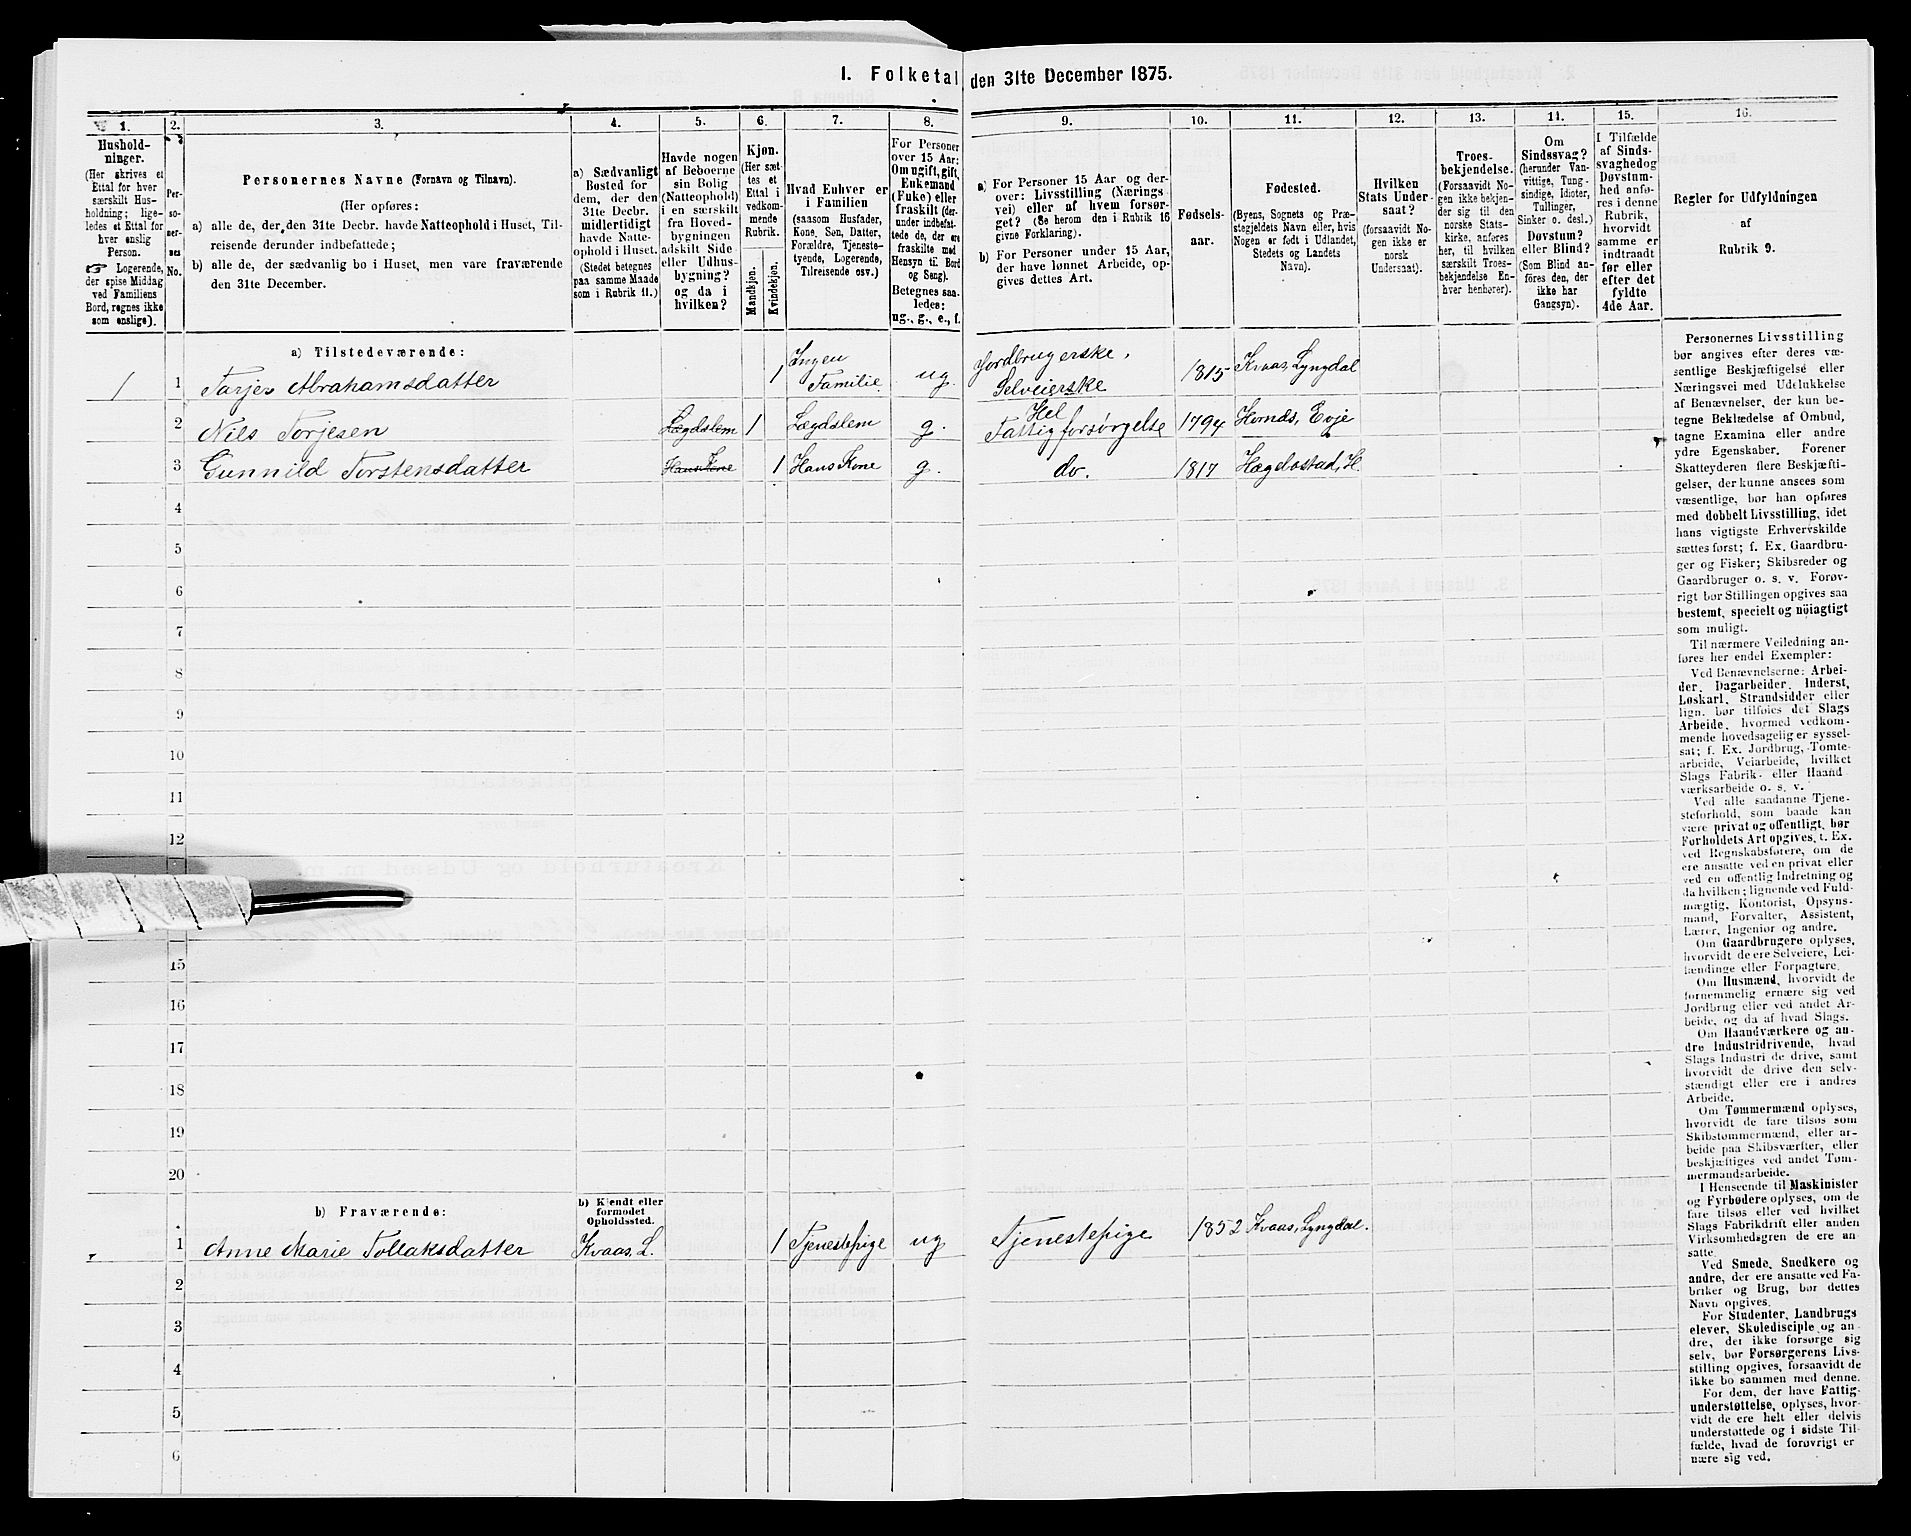 1. Folketal den 31te December 1875.
1.
Hushold-
ninger.
(Her skrives et
Ettal for hver
særskilt Hus-
holdning; lige-
ledes et Ettal for
hver enslig
Person.
☞ Logerende,
der spise Middag
ved Familiens
Bord, regnes ikke
som enslige).
2.
Per-
so-
ner-
nes
No.
3.
Personernes Navne (Fornavn og Tilnavn).
(Her opføres:
a) alle de, der den 31te Decbr. havde Natteophold i Huset, Til-
reisende derunder indbefattede;
b) alle de, der sædvanlig bo i Huset, men vare fraværende
den 31te December.
4.
a) Sædvanligt
Bosted for
dem, der den
31te Decbr.
midlertidigt
havde Natte-
ophold i Huset.
(Stedet betegnes
paa samme Maade
som i Rubrik 11.)
5.
Havde nogen
af Beboerne
sin Bolig
(Natteophold)
i en særskilt
fra Hoved-
bygningen
adskilt Side
eller Udhus-
bygning?
og da i
hvilken?
6.
Kjøn.
(Her sæt-
tes et
Ettal i
vedkom-
mende
Rubrik.
Mandkjøn.
Kvindekjøn.
7.
Hvad Enhver er
i Familien
(saasom Husfader,
Kone, Søn, Datter,
Forældre, Tjeneste-
tyende, Logerende,
Tilreisende osv.)
8.
For Personer
over 15 Aar:
Om ugift, gift,
Enkemand
(Enke) eller
fraskilt (der-
under indbefat-
tede de, der ere
fraskilte med
Hensyn til Bord
og Seng).
Betegnes saa-
ledes:
ug., g., e., f.
9.
a) For Personer 15 Aar og der-
over: Livsstilling (Nærings-
vei) eller af hvem forsør-
get? (Se herom den i Rubrik 16
givne Forklaring).
b) For Personer under 15 Aar,
der have lønnet Arbeide, op-
gives dettes Art.
10.
Fødsels-
aar.
11.
Fødested.
(Byens, Sognets og Præ-
stegjeldets Navn eller, hvis
Nogen er født i Udlandet,
Stedets og Landets
Navn).
12.
Hvilken
Stats Under-
saat?
(forsaavidt No-
gen ikke er
norsk
Undersaat).
13.
Troes-
bekjendelse.
(Forsaavidt No-
gen ikke bekjen-
der sig til den
norske Stats-
kirke, anføres
her, til hvilken
særskilt Troes-
bekjendelse En-
hver henhører).
14.
Om
Sindssvag?
(herunder Van-
vittige, Tung-
sindige, Idioter,
Tullinger,
Sinker o. desl.)
Døvstum?
eller Blind?
(Som Blind an-
føres den, der
ikke har
Gangsyn).
15.
I Tilfælde
af Sinds-
svaghed og
Døvstum-
hed anfø-
res i denne
Rubrik,
hvorvidt
samme er
indtraadt
før eller
efter det
fyldte
4de Aar.
16.
Regler for Udfyldningen
af
Rubrik 9.
a) Tilstedeværende:
1 1 Tarjer Abrahamsdatter 1 Ingen Familie ug. Jordbrugerske, Selveierske 1815 Kvaas, Lyngdal
2 Nils Torjesen Lægdslem 1 Lægdslem g. Hel Fattigforsørgelse 1794 Hornds, Evje
3 Gunnild Torstensdatter Hans Kone 1 Hans Kone g. do. 1817 Hægebostad, H.
4
5
6
7
8
9
10
11
12
15
16
17
18
19
20
b) Fraværende:
b) Kjendt eller
formodet
Opholdssted.
1 Anne Marie Tollaksdatter Kvaas, L. 1 Tjenestepige ug Tjenestepige 1852 Kvaas, Lyngdal.
2
3
4
5
6
Personernes Livsstilling
bør angives efter deres væ-
sentlige Beskjæftigelse eller
Næringsvei med Udelukkelse
af Benævnelser, der kun be-
tegne Beklædelse af Ombud,
tagne Examina eller andre
ydre Egenskaber. Forener
Skatteyderen flere Beskjæfti-
gelser, der kunne ansees som
væsentlige, bør han opføres
med dobbelt Livsstilling, idet
hans vigtigste Erhvervskilde
sættes først; f. Ex. Gaardbru-
ger og Fisker; Skibsreder og
Gaardbruger o. s. v. Forøv-
rigt bør Stillingen opgives saa
bestemt, specielt og nöiagtigt
som muligt.
Til nærmere Veiledning an-
føres her endel Exempler:
Ved Benævnelserne: Arbei-
der, Dagarbeider, Inderst,
Løskarl, Strandsidder eller
lign. bør tilføies det Slags
Arbeide, hvormed vedkom-
mende hovedsagelig er syssel-
sat; f. Ex. Jordbrug, Tomte-
arbeide, Veiarbeide, hvilket
Slags Fabrik- eller Haand-
værksarbeide o. s. v.
Ved alle saadanne Tjene-
steforhold, som baade kan
være privat og offentligt, bør
Forholdets Art opgives, t. Ex.
ved Regnskabsførere, om de
ere ansatte ved en privat eller
ved en offentlig Indretning og
da hvilken; lignende ved Fuld-
mægtig, Kontorist, Opsyns-
mand, Forvalter, Assistent,
Lærer, Ingeniør og andre.
Om Gaardbrugere oplyses,
hvorvidt de ere Selveiere, Lei-
lændinge eller Forpagtere.
Om Husmænd, hvorvidt de
fornemmelig ernære sig ved
Jordbrug eller ved andet Ar-
beide, og da af hvad Slags.
Om Haandværkere og an-
dre Industridrivende, hvad
Slags Industri de drive, samt
hvorvidt de drive den selv-
stændigt eller ere i andres
Arbeide.
Om Tømmermænd oplyses,
hvorvidt de fare tilsøs som
Skibstømmermænd, eller ar-
beide paa Skibsværfter, eller
beskjæftiges ved andet Tøm-
mermandsarbeide.
I Henseende til Maskinister
og Fyrbødere oplyses, om de
fare tilsøs eller ved hvilket
Slags Fabrikdrift eller anden
Virksomhedsgren de ere an-
satte.
Ved Smede, Snedkere og
andre, der ere ansatte ved Fa-
briker og Brug, bør dettes
Navn opgives.
For Studenter, Landbrugs-
elever, Skoledisciple og an-
dre, der ikke forsørge sig
selv, bør Forsørgerens Livs-
stilling opgives, forsaavidt de
ikke bo sammen med denne.
For dem, der have Fattig-
understøttelse, oplyses, hvor-
vidt de ere helt eller delvis
understøttede og i sidste Til-
fælde, hvad de forøvrigt er-
nære sig ved.